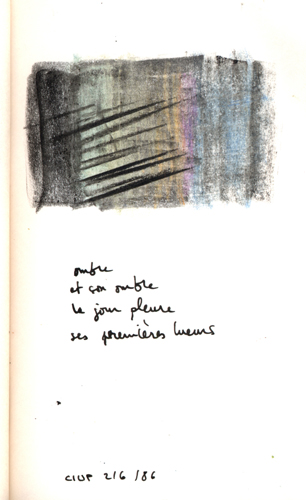 ombre
et son ombre
le jour pleure
ses premières lueurs
CIUP 2/6/86